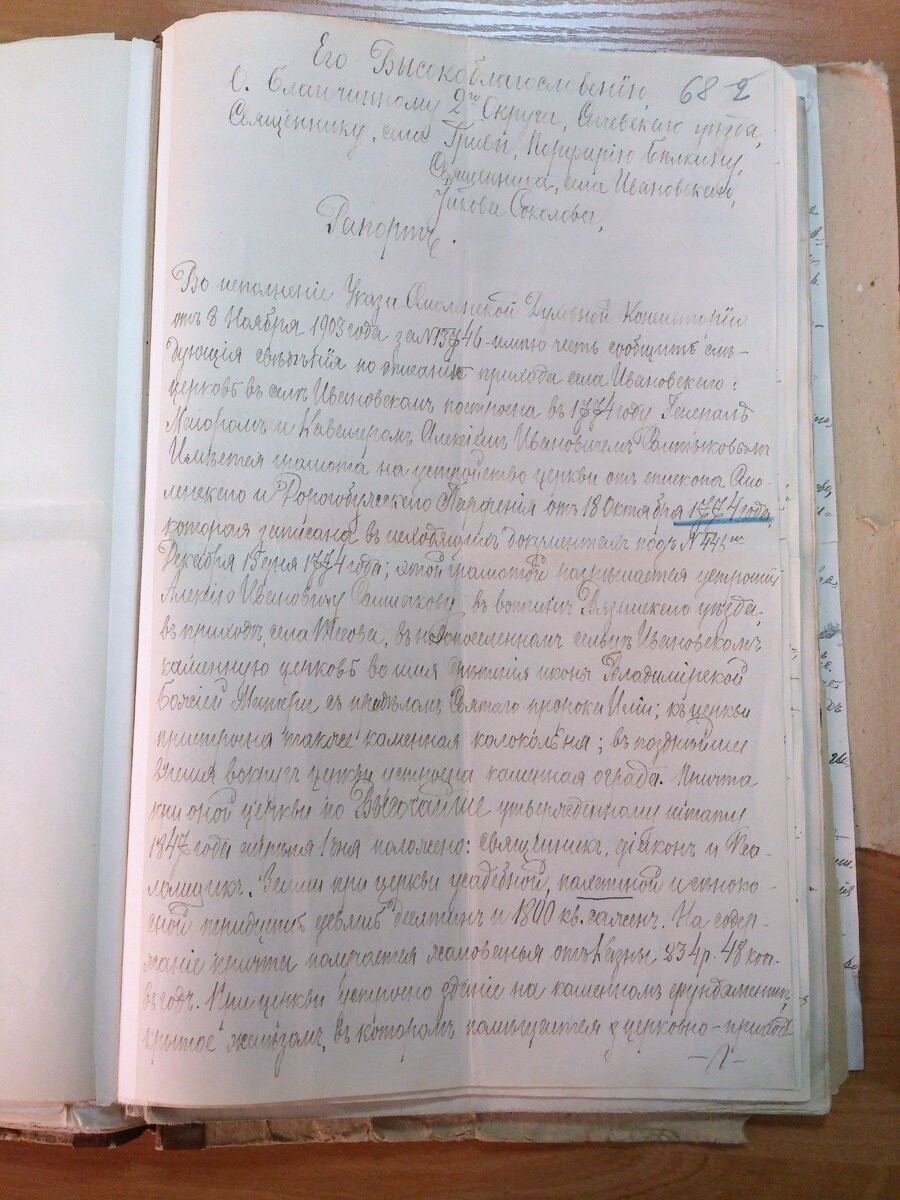 Его Высокоблагословенію,
68 2
О. Благочинному 2го Округа, Сычевскаго уѣзда,
Священнику, села Тривей, Порфирію Бѣлкину,
Священника, села Ивановскаго,
Іакова Соколова,
Рапортъ.
Во исполненіе Указа Смоленской Духовной Консисторіи
отъ 8 Ноября 1903 года за № 13746 имѣю честь сообщить слѣ-
дующія свѣдѣнія по описанію прихода села Ивановскаго:
церковь въ селѣ Ивановскомъ построена въ 1774 году Генералъ
Маіоромъ и Кавалеромъ Алексѣемъ Ивановичемъ Салтыковымъ
Имѣется грамота на устройство церкви отъ епископа Смо-
ленскаго и Дорогобужскаго Парѳенія отъ 18 Октября 1774 года,
которая записана въ исходящихъ документахъ подъ №
Декабря 15 дня 1774 года; этой грамотой разрѣшается устроить
Алексію Ивановичу Салтыкову, въ вотчинѣ Вяземскаго уѣзда,
въ приходѣ села Тесова, въ новопоселенномъ сельцѣ Ивановскомъ
каменную церковь во имя Срѣтенія иконы Владимірской
Божіей Матери съ придѣломъ Святаго пророка Иліи; къ церкви
пристроена также каменная колокольня; въ позднѣйшее
время вокругъ церкви устроена каменная ограда. Причта
при оной церкви по Высочайше утвержденному штату
1847 года апрѣля 1 дня положено: священникъ, діаконъ и Пса-
ломщикъ. Земли при церкви усадебной, пахатной и сѣноко-
сной тридцать девять десятинъ и 1800 кв. саженъ. На содер-
жаніе причта получается жалованья отъ Казны 234 р. 48 коп.
въ годъ. При церкви устроено зданіе на каменномъ фундаментѣ,
крытое желѣзомъ, въ которомъ помѣщается церковно-приход